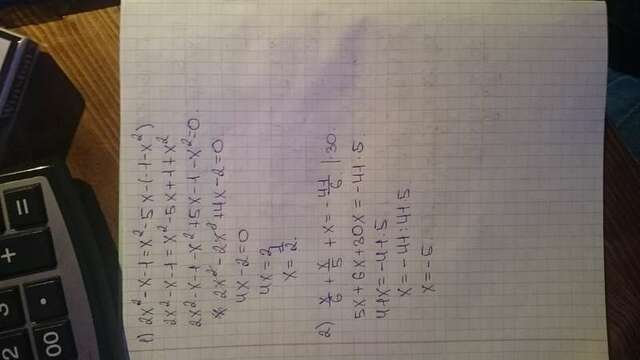 1) 2x²-x-1=x²-5x-(-1-x²)
2x²-x-1=x²-5x+1+x²
2x²-x-1-x²+5x-1-x²=0.
2x²-2x²+4x-2=0
4x-2=0
4x=2
x=1/2.
2) x/6+x/5+x=-41/6 |·30.
5x+6x+30x=-41·5.
41x=-41·5
x=-41:41·5
x=-5
=
+
2
3
00